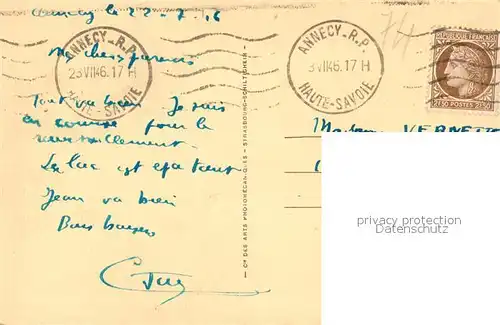 Annecy le 22-7-46
Mes chers parents
Tout va bien Je suis
en course pour le
Le lac est épatant
Jean va bien
Bons baisers
ANNECY-R.P.
23 VII 46. 17 H
HAUTE-SAVOIE
ANNECY-R.P.
3 VII 46. 17 H
HAUTE-SAVOIE
74
RÉPUBLIQUE FRANÇAISE
2F50 POSTES 2F50
Madame VERNETTE
CIE DES ARTS PHOTOMÉCANIQUES - STRASBOURG-SCHILTIGHEIM
copyright protected
www.ansichtskartenversand.com